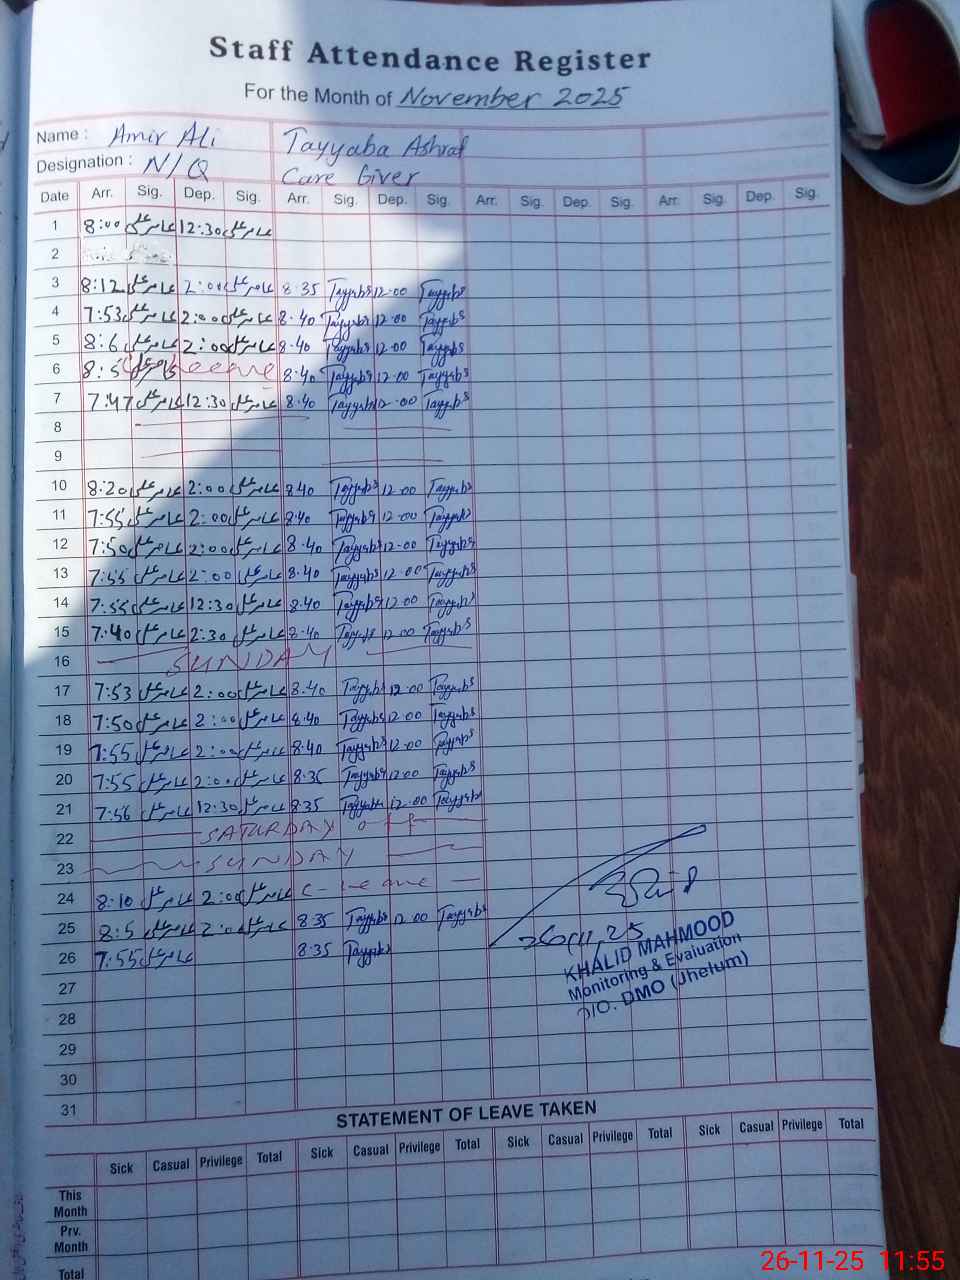 Staff Attendance Register
For the Month of November 2025
Name : Amir Ali Tayyaba Ashraf
Designation : N/Q Care Giver
Date Arr. Sig. Dep. Sig. Arr. Sig. Dep. Sig. Arr. Sig. Dep. Sig. Arr. Sig. Dep. Sig.
1 8:00 عامر علی 12:30 عامر علی
2
3 8:12 عامر علی 2:00 عامر علی 8.35 Tayyaba 12.00 Tayyaba
4 7:53 عامر علی 2:00 عامر علی 8.40 Tayyaba 12.00 Tayyaba
5 8:6 عامر علی 2:00 عامر علی 8.40 Tayyaba 12.00 Tayyaba
6 8:5 عامر علی Leave 8.40 Tayyaba 12.00 Tayyaba
7 7:47 عامر علی 12:30 عامر علی 8.40 Tayyaba 12.00 Tayyaba
8
9
10 8:20 عامر علی 2:00 عامر علی 8.40 Tayyaba 12.00 Tayyaba
11 7:55 عامر علی 2:00 عامر علی 8.40 Tayyaba 12.00 Tayyaba
12 7:50 عامر علی 2:00 عامر علی 8.40 Tayyaba 12.00 Tayyaba
13 7:55 عامر علی 2:00 عامر علی 8.40 Tayyaba 12.00 Tayyaba
14 7:55 عامر علی 12:30 عامر علی 8.40 Tayyaba 12.00 Tayyaba
15 7:40 عامر علی 2:30 عامر علی 8.40 Tayyaba 12.00 Tayyaba
16 SUNDAY
17 7:53 عامر علی 2:00 عامر علی 8.40 Tayyaba 12.00 Tayyaba
18 7:50 عامر علی 2:00 عامر علی 8.40 Tayyaba 12.00 Tayyaba
19 7:55 عامر علی 2:00 عامر علی 8.40 Tayyaba 12.00 Tayyaba
20 7:55 عامر علی 2:00 عامر علی 8.35 Tayyaba 12.00 Tayyaba
21 7:56 عامر علی 12:30 عامر علی 8.35 Tayyaba 12.00 Tayyaba
22 SATURDAY off
23 SUNDAY
24 8:10 عامر علی 2:00 عامر علی C-Leave
25 8:5 عامر علی 2:00 عامر علی 8.35 Tayyaba 12.00 Tayyaba
26 7:55 عامر علی 8.35 Tayyaba
26/11/25
KHALID MAHMOOD
Monitoring & Evaluation
O/O. DMO (Jhelum)
27
28
29
30
31
STATEMENT OF LEAVE TAKEN
Sick Casual Privilege Total Sick Casual Privilege Total Sick Casual Privilege Total Sick Casual Privilege Total
This Month
Prv. Month
Total
26-11-25 11:55